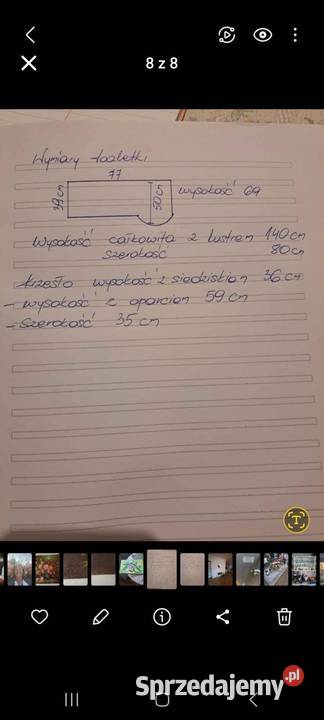 8 z 8
Wymiary toaletki
77
39 cm
50 cm
wysokość 69
Wysokość całkowita z lustrem 140 cm
szerokość 80 cm
krzesło wysokość z siedziskiem 36 cm
- wysokość z oparciem 59 cm
- szerokość 35 cm
T
Sprzedajemy.pl